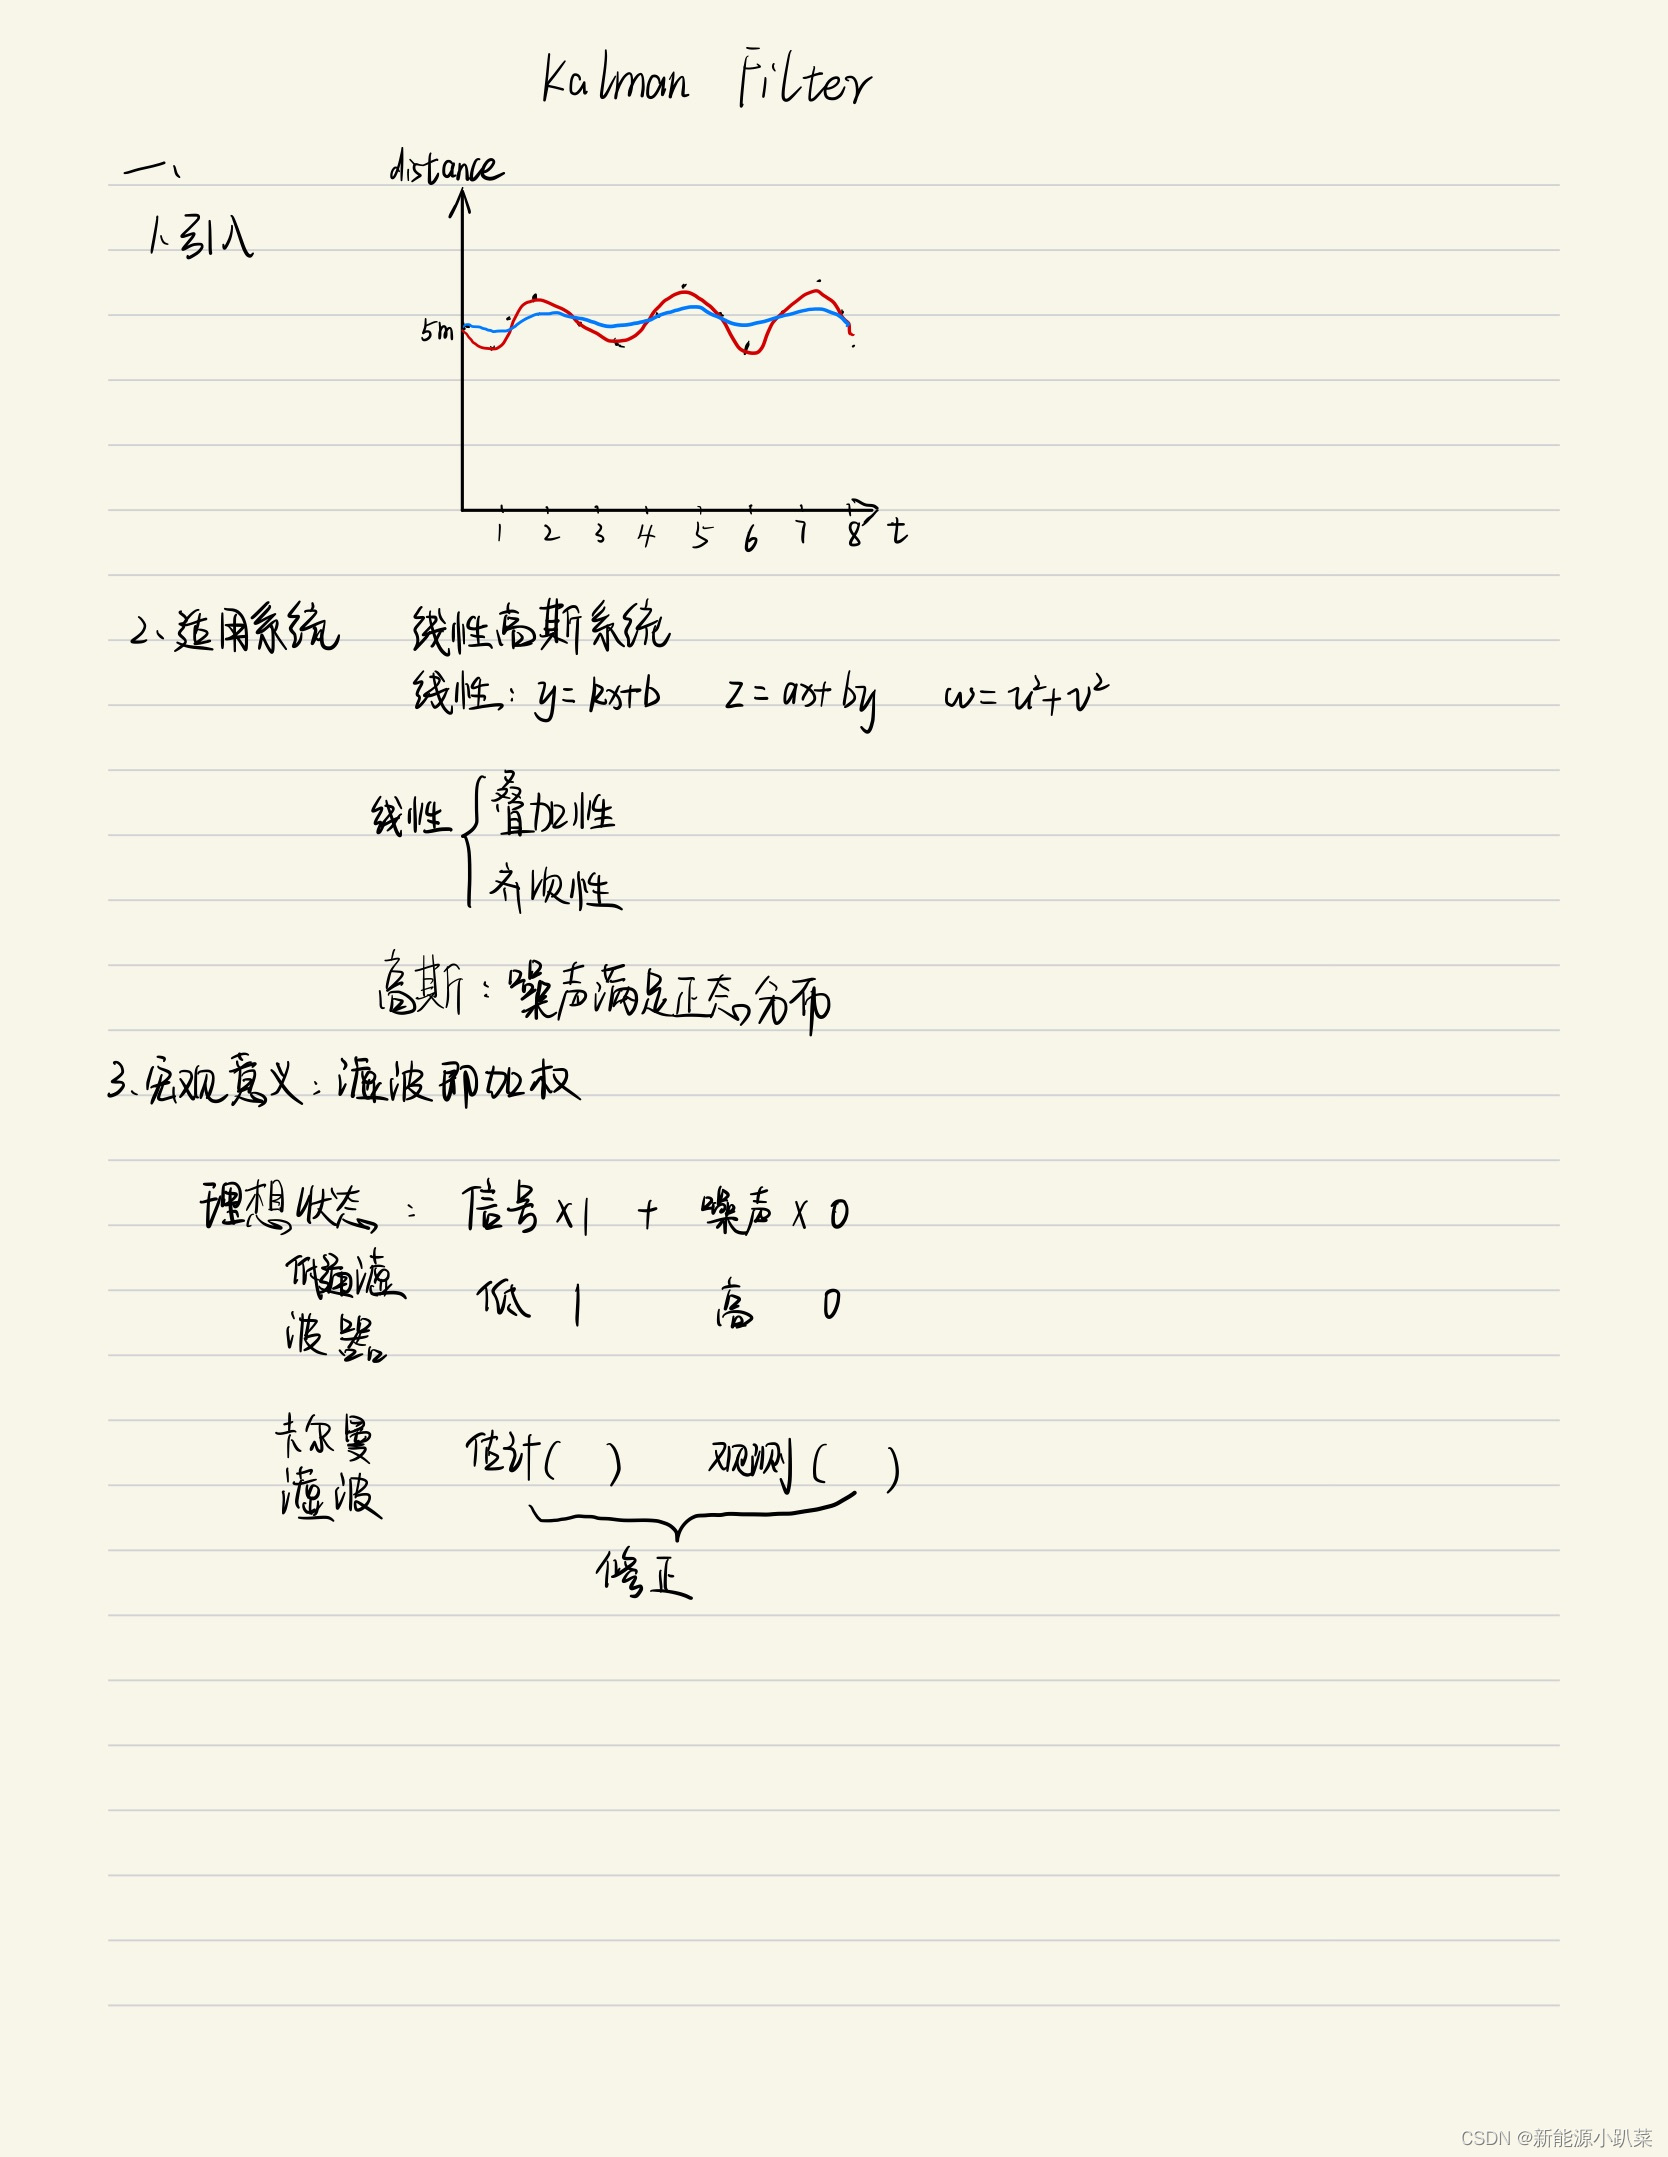 Kalman Filter
一、
distance
1、引入
5m
1 2 3 4 5 6 7 8 t
2、适用系统 线性高斯系统
线性：y=kx+b z=ax+by w=u²+v²
线性{叠加性
齐次性
高斯：噪声满足正态分布
3、宏观意义：滤波即加权
理想状态：信号×1 + 噪声×0
低通滤
波器 低 1 高 0
卡尔曼
滤波 估计( ) 观测( )
修正
CSDN @新能源小趴菜